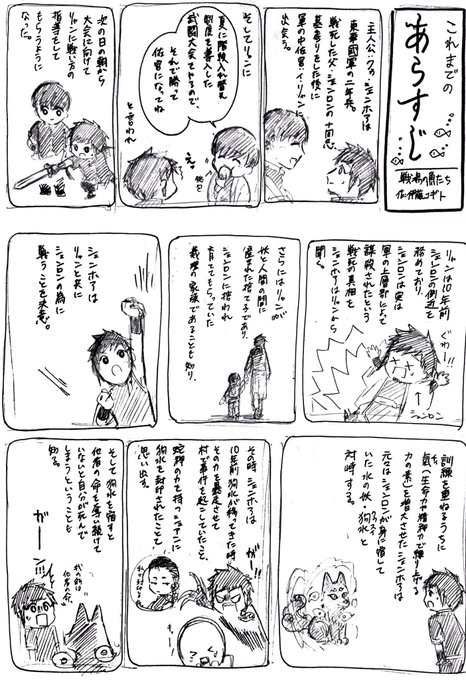 これまでの
あらすじ
主人公・クウ・ジェンホアは
東葉國軍の二年兵。
戦死した父・ジェンロンの十回忌、
墓参りをした後に
軍の中佐官・イ・リャンに
出会う。
そしてリャンに
夏に階段入れ替え
制度を導入した
武闘大会をやるので、
それで勝って
佐官になってね
と言われ
え。
次の日の朝から
大会に向けて
リャンに戦い方の
指導をして
もらうように
なった。
リャンは10年前
ジェンロンの側近を
務めており、
ジェンロンは実は
軍の上層部によって
謀殺されたという
戦死の真相を
ジェンホアはリャンから
聞く。
ぐわー!!
ジェンロン
さらにはリャンが
妖と人間の間に
産まれた捨て子であり、
ジェンロンに拾われ
育ててもらっていた
義理の家族であることも知り、
ジェンホアは
リャンと共に
ジェンロンの為に
戦うことを決意。
訓練を重ねるうちに
氣(生命力や精神力で練り上げる
力の素)を増大させたジェンホアは
元々はジェンロンが身に宿して
いた水の妖・狗水と
対峙する。
その時ジェンホアは
10年前狗水が持ってきた時
その力を暴走させて
村で事件を起こしていたこと、
蛇神の力を持つ
狗水を封印されたことを
思い出す。
ガー!!
そして狗水を宿すと
他者の命を奪い続けて
いないと自分が死んで
しまうということも
知る。
ガーン!!!
我の餌は
他者の命